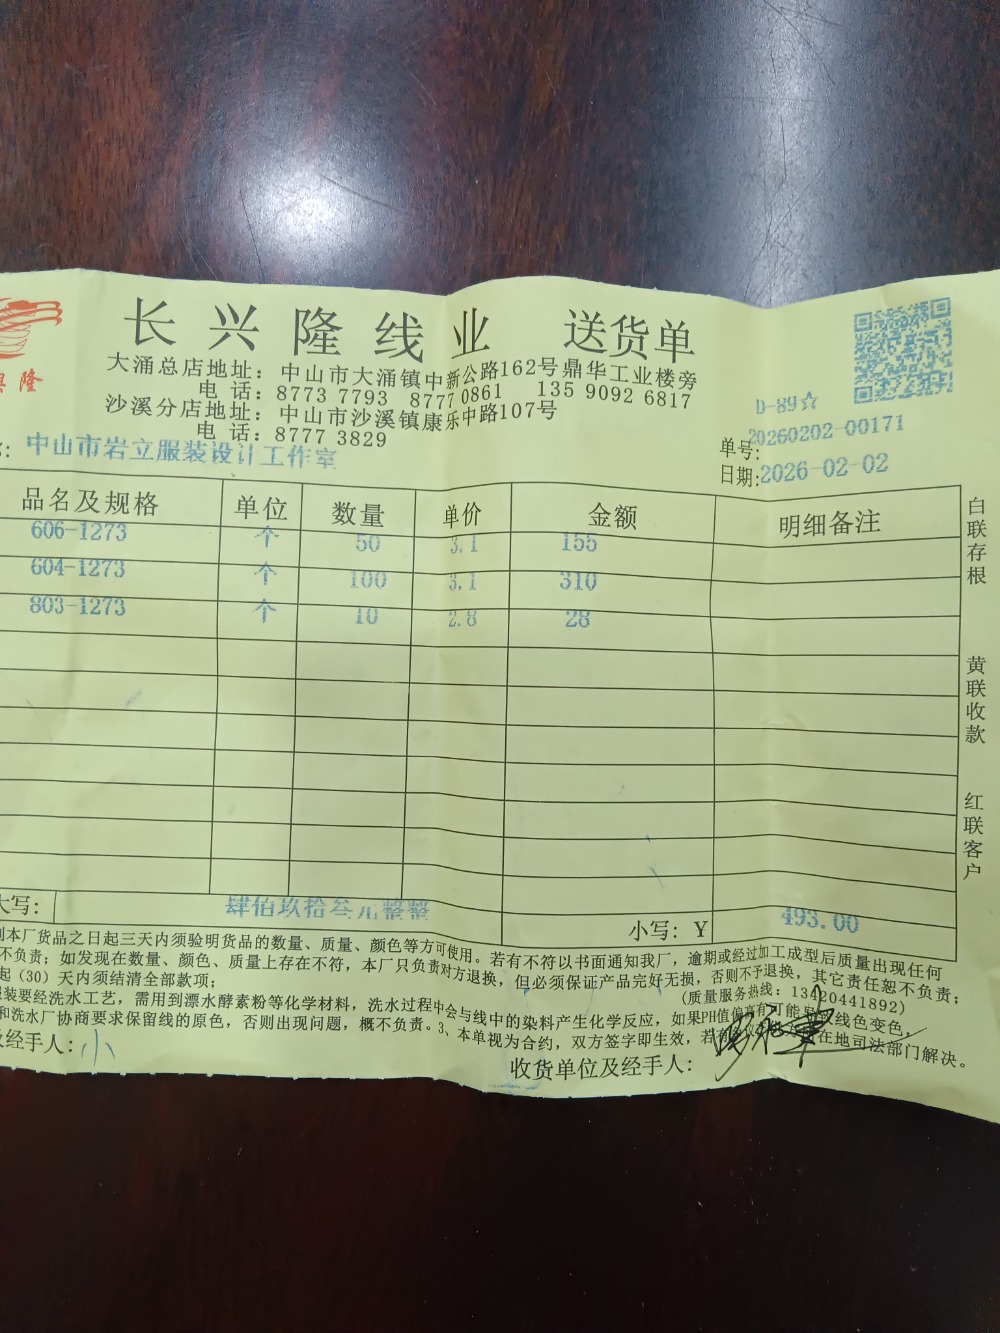 長興隆线业 送货单
隆
大涌总店地址：中山市大涌镇中新公路162号鼎华工业楼旁
电 话：8773 7793 8777 0861 135 9092 6817
沙溪分店地址：中山市沙溪镇康乐中路107号
电 话：8777 3829
D-89☆
单号:20260202-00171
日期:2026-02-02
中山市岩立服装设计工作室
品名及规格 单位 数量 单价 金额 明细备注
606-1273 个 50 3.1 155
604-1273 个 100 3.1 310
803-1273 个 10 2.8 28
白联存根
黄联收款
红联客户
大写： 肆佰玖拾叁元整整 小写：Y 493.00
到本厂货品之日起三天内须验明货品的数量、质量、颜色等方可使用。若有不符以书面通知我厂，逾期或经过加工成型后质量出现任何
不负责；如发现在数量、颜色、质量上存在不符，本厂只负责对方退换，但必须保证产品完好无损，否则不予退换，其它责任恕不负责；
起（30）天内须结清全部款项；
(质量服务热线：13420441892)
服装要经洗水工艺，需用到漂水酵素粉等化学材料，洗水过程中会与线中的染料产生化学反应，如果PH值偏高有可能导致线色变色，
和洗水厂协商要求保留线的原色，否则出现问题，概不负责。3、本单视为合约，双方签字即生效，若有 在地司法部门解决。
及经手人：小
收货单位及经手人：